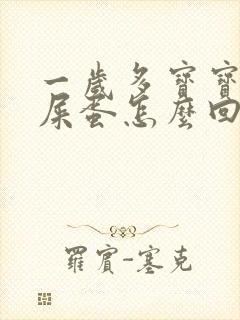 一歲多寶寶
屎蛋怎麼回
羅賓-塞克